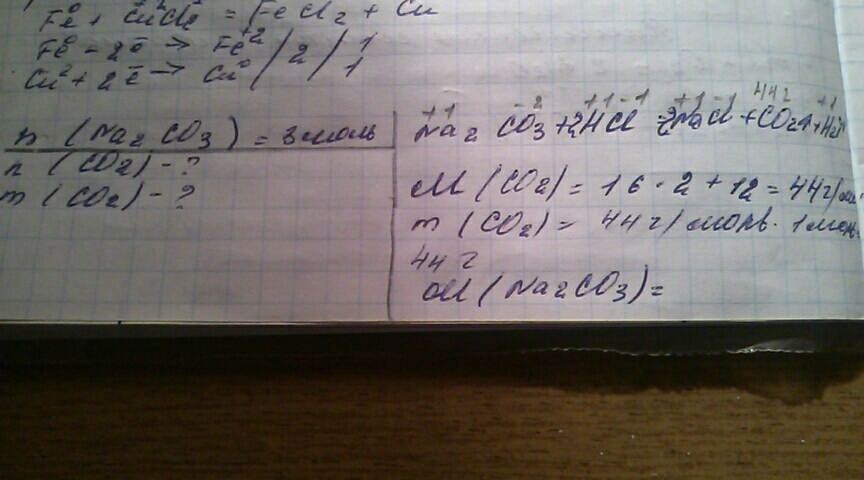 Fe⁰ + CuCl₂ = FeCl₂ + Cu
Fe⁰ - 2ē → Fe⁺² / 2 / 1
Cu² + 2ē → Cu⁰ / 1
n (Na₂CO₃) = 3 моль
n (CO₂) - ?
m (CO₂) - ?
44 г
Na₂CO₃ + 2HCl = 2NaCl + CO₂↑ + H₂
M (CO₂) = 16 · 2 + 12 = 44 г/моль
m (CO₂) = 44 г/моль · 1 моль
44 г
M (Na₂CO₃) =